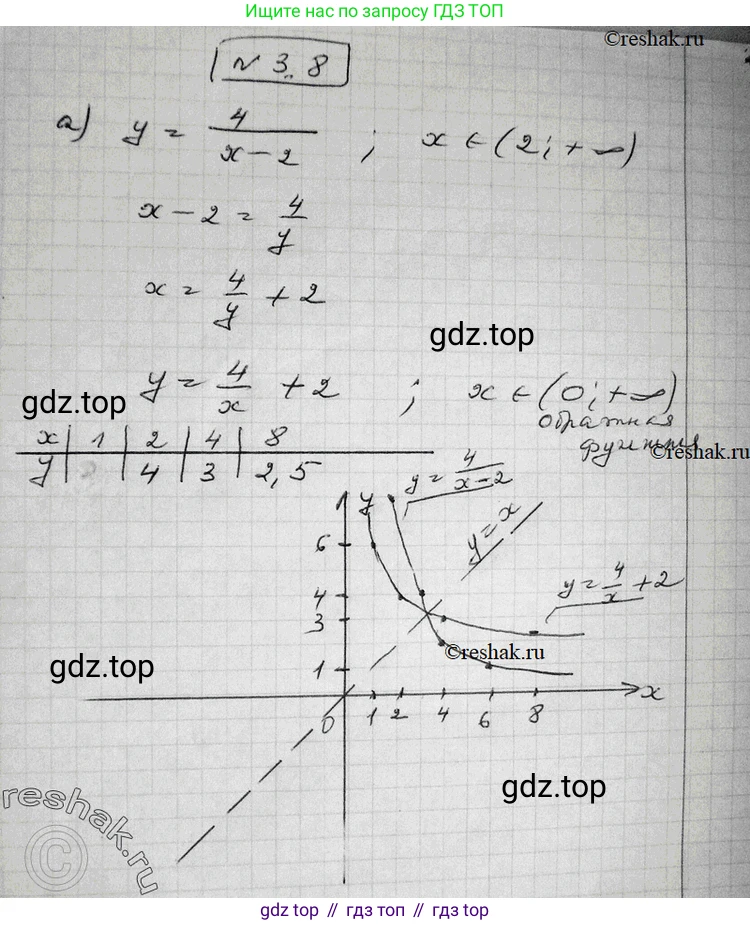 Ищите нас по запросу ГДЗ ТОП
©reshak.ru
№ 3.8
а) y = 4/(x-2) ; x ∈ (2; +∞)
x - 2 = 4/y
x = 4/y + 2
gdz.top
y = 4/x + 2 ; x ∈ (0; +∞)
gdz.top
обратная
функция
©reshak.ru
x | 1 | 2 | 4 | 8
y | | 4 | 3 | 2,5
y = 4/(x-2)
y
y = x
6
y = 4/x + 2
4
3
©reshak.ru
gdz.top
1
x
0 1 2 4 6 8
gdz.top
reshak.ru
©
gdz top // гдз топ // gdz top